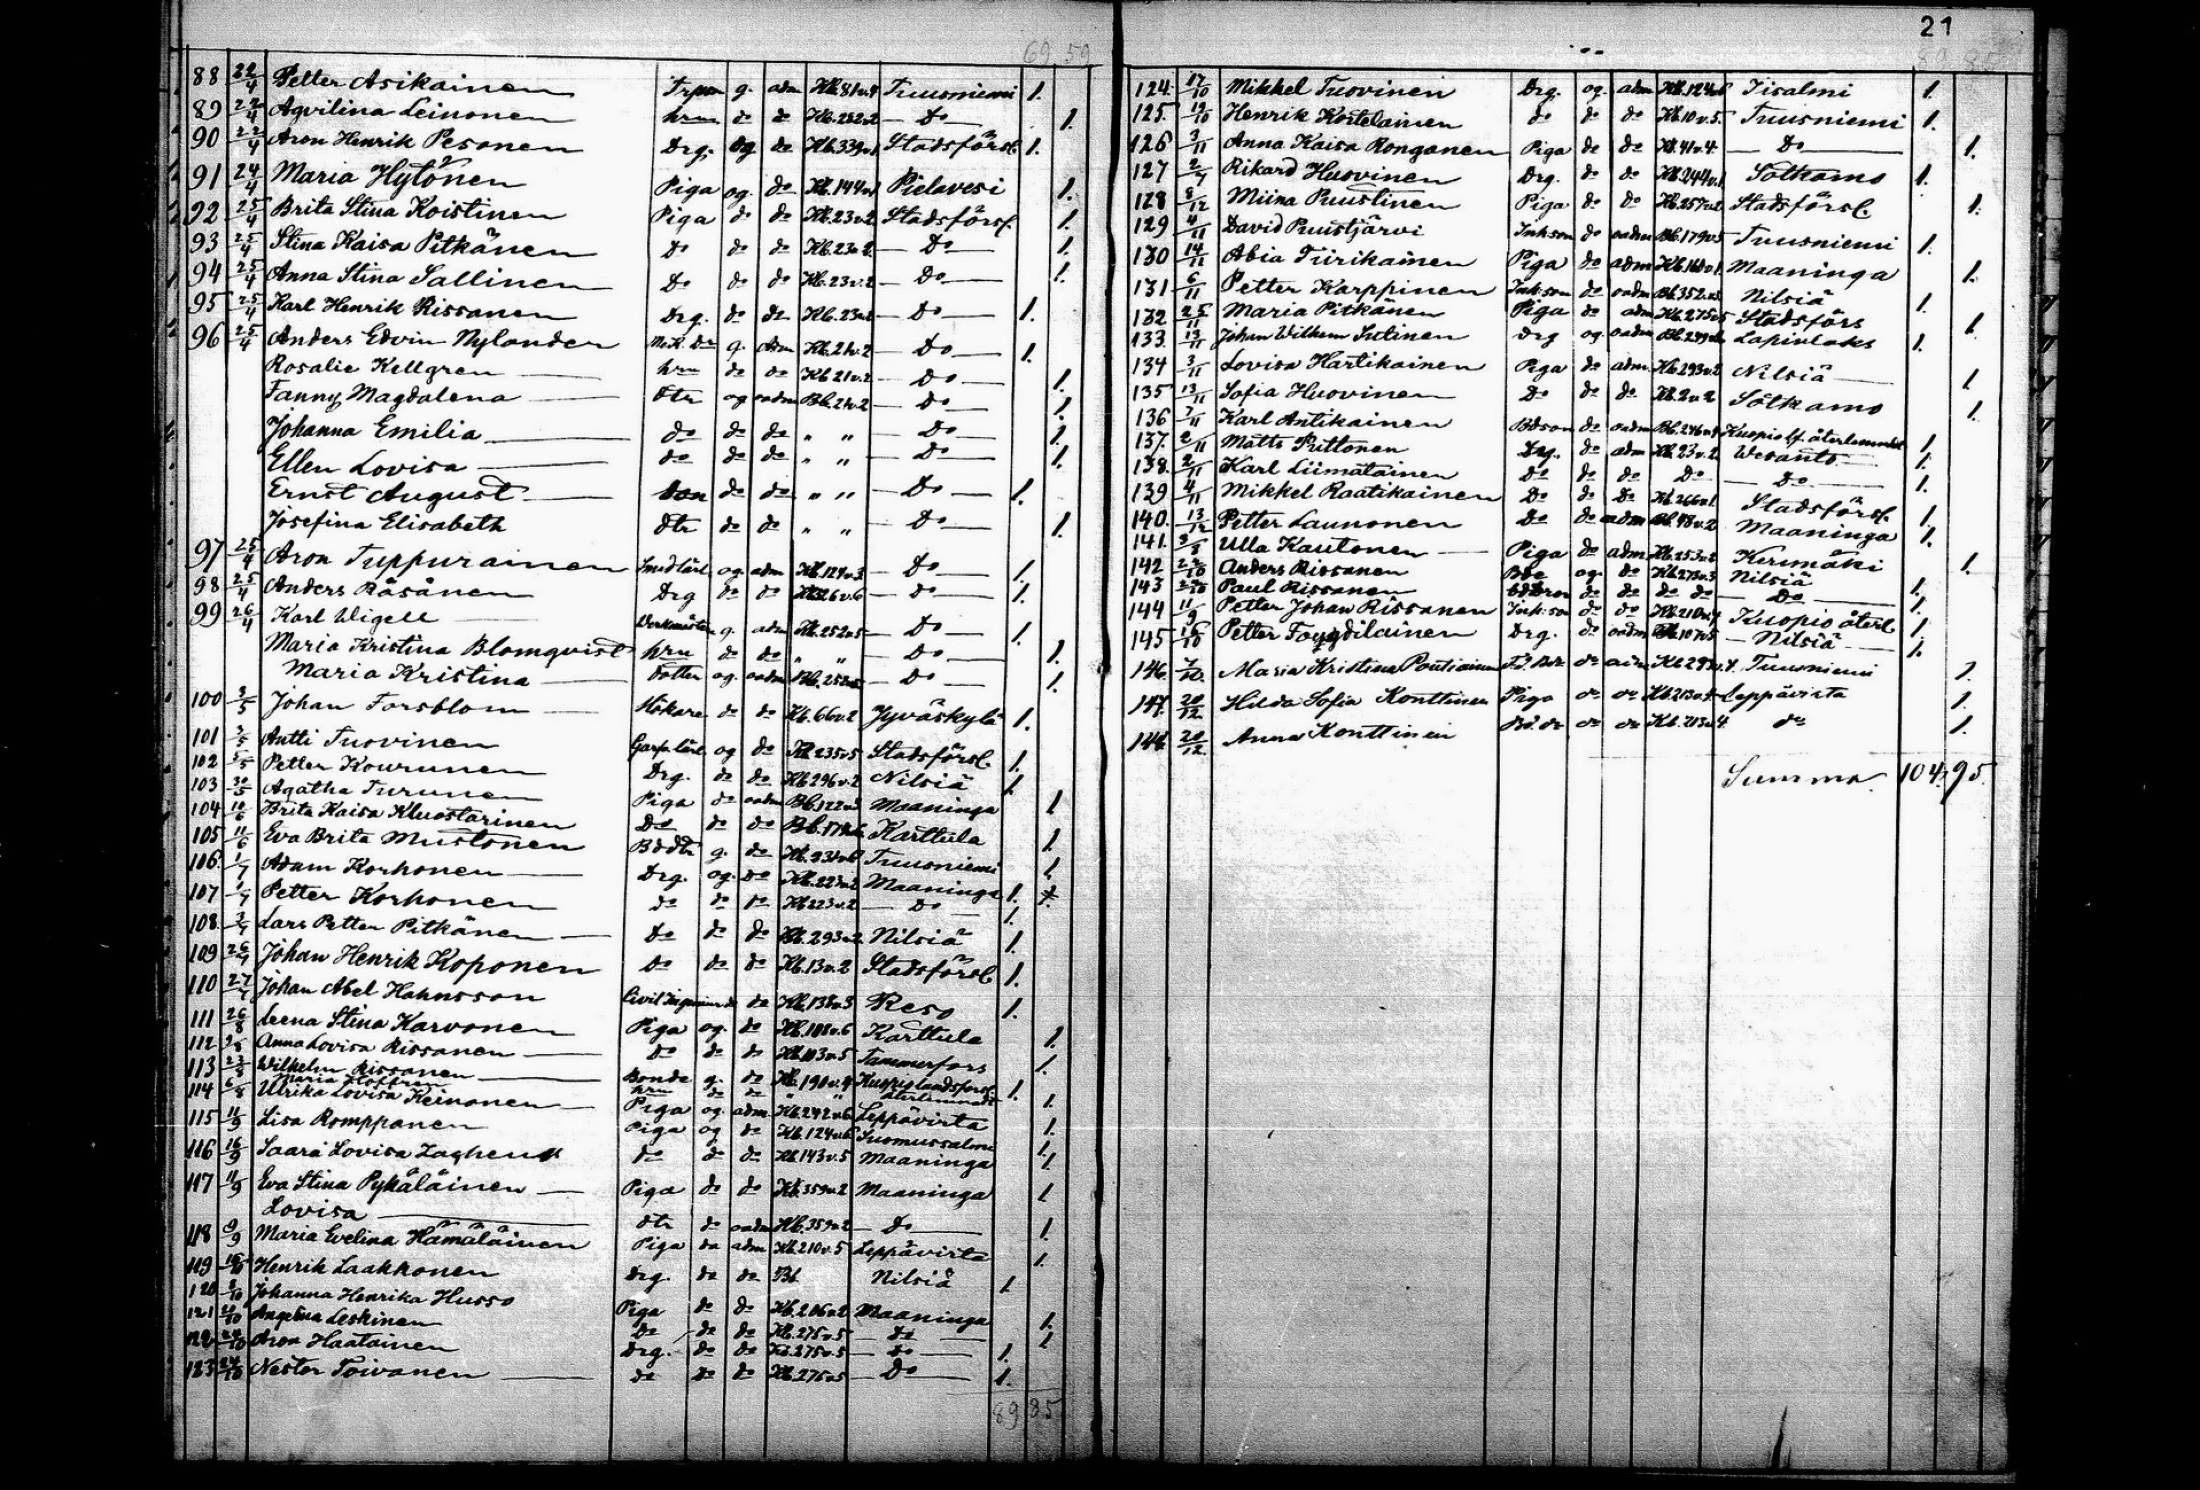 69 59
88 22/4 Petter Asikainen g. adm Kb. 81 v. 4 Tuusniemi 1.
89 22/4 Agvilina Leinonen hru do do Kb. 252 v. 2 — Do — 1.
90 22/4 Aron Henrik Pesonen Drg. og do Kb. 339 v. 1 Stadsförs. 1.
91 24/4 Maria Hytönen Piga og. do Kb. 144 v. 1 Pielavesi 1.
92 25/4 Brita Stina Koistinen Piga do do Kb. 23 v. 2 Stadsförs. 1.
93 25/4 Stina Kaisa Pitkänen Do do do Kb. 23 v. 2. — Do — 1.
94 25/4 Anna Stina Sallinen Do do do Kb. 23 v. 2 — Do — 1.
95 25/4 Karl Henrik Rissanen Drg. do do Kb. 23 v. 2 — Do — 1.
96 25/4 Anders Edvin Nylander g. adm Kb. 21 v. 2 — Do — 1.
Rosalie Kellgren — hru do do Kb. 21 v. 2 — Do — 1.
Fanny Magdalena — Dtr og oadm Bb. 21 v. 2 — Do — 1.
Johanna Emilia — do do do " " — Do — 1.
Ellen Lovisa — do do do " " — Do — 1.
Ernst August — son do do " " — Do — 1.
Josefina Elisabeth dtr do do " " — Do — 1.
97 25/4 Aron Tuppurainen Smedlärl. og. adm Kb. 124 v. 3 — Do — 1.
98 25/4 Anders Räsänen Drg do do Kb. 326 v. 6 — do — 1.
99 26/4 Karl Wigell — g. adm Kb. 252 v. 5 — Do — 1.
Maria Kristina Blomqvist hru do do " " — Do — 1.
Maria Kristina — Dotter og. oadm Bb. 252 v. 5 — Do — 1.
100 3/5 Johan Forsblom — Hökare do do Kb. 66 v. 2 Jyväskylä 1.
101 3/5 Antti Tuovinen Garfv.lärl. og do Kb. 235 v. 5 Stadsförs. 1.
102 5/5 Petter Kourunen Drg. do do Kb. 296 v. 2 Nilsiä 1.
103 30/5 Agatha Turunen Piga do oadm Bb. 122 v. 3 Maaninga 1
104 10/6 Brita Kaisa Kluostarinen Do do do Karttula 1.
105 11/6 Eva Brita Mustonen g. do Kb. 231 v. 6 Tuusniemi 1.
106. 1/7 Adam Korhonen — Drg. og. do Kb. 223 v. 2 Maaninga 1.
107 1/7 Petter Korhonen do do do Kb 223 v. 2 — Do — 1.
108. 3/7 Lars Petter Pitkänen — Do do do Kb. 293 v. 2. Nilsiä 1.
109 26/7 Johan Henrik Koponen Do do do Kb. 13 v. 2 Stadsförs. 1.
110 27/7 Johan Abel Hahnsson Civil Ingenieur do do Kb. 138 v. 3 Reso 1.
111 26/8 Leena Stina Karvonen Piga og. do Kb. 108 v. 6 Karttula 1.
112 Anna Lovisa Rissanen — Do do do Kb. 103 v. 5 Tammerfors 1.
113 23/8 Wilhelm Rissanen — Bonde g. do Kb. 190 v. 4 Kuopio landsförs. 1.
hru do do " " återlemnadt 1.
114 6/8 Ulrika Lovisa Keinonen — Piga og. adm. Kb. 242 v. 6 Leppävirta 1.
115 11/9 Lisa Romppanen Piga og do Kb. 124 v. 6 Suomussalmi 1.
116 16/9 Saara Lovisa Zaghen do do do Kb. 143 v. 5 Maaninga 1.
117 11/9 Eva Stina Pykäläinen — Piga do do Kb. 359 v. 2 Maaninga 1
Lovisa — dtr do oadm Kb. 359 v. 2 — Do — 1.
118 9/9 Maria Evelina Hämäläinen Piga do adm Kb. 210 v. 5 Leppävirta 1.
119 Henrik Laakkonen Drg. do do Bb. Nilsiä 1.
120 8/10 Johanna Henrika Husso Piga do do Kb. 206 v. 2 Maaninga 1.
121 Angelina Leskinen Do do do Kb. 275 v. 5 — do — 1.
122 Aron Haatainen Drg. do do Kb. 275 v. 5 — do — 1.
123 24/10 Nestor Toivanen — do do do Kb. 275 v. 5 — Do — 1.
89 85
21
89 85
124. 17/10 Mikkel Tuovinen Drg. og. adm Kb. 124 v. 6 Iisalmi 1.
125. 19/10 Henrik Kortelainen do do do Kb. 10 v. 5. Tuusniemi 1.
126 3/11 Anna Kaisa Ronganen Piga do do Kb. 41 v. 4. — Do — 1.
127 Rikard Huovinen Drg. do do Kb. 244 v. 1. Sotkamo 1.
128 8/12 Miina Puustinen Piga do do Kb. 257 v. 2 Stadsförs. 1.
129 4/11 David Puustjärvi Inh.son do oadm Bb. 179 v. 5 Tuusniemi 1.
130 14/11 Abia Tiirikainen Piga do adm Kb. 160 v. 1. Maaninga 1.
131 6/11 Petter Karppinen Inh.son do oadm Bb. 352 v. 3 Nilsiä 1.
132 25/11 Maria Pitkänen Piga do adm Kb. 275 v. 5 Stadsförs 1.
133. 13/11 Johan Wilhelm Sutinen Drg og. oadm Lapinlaks 1.
134 3/11 Lovisa Hartikainen Piga do adm. Kb. 293 v. 2 Nilsiä — 1
135 13/11 Sofia Huovinen Do do do Kb. 2 v. 2 Sotkamo 1.
136 7/11 Karl Antikainen Bdson do oadm Bb. 246 v. 4 Kuopio lf. återlemnadt 1.
137. 2/11 Matts Puttonen Drg. do adm Kb. 23 v. 2. Wesanto — 1.
138. 2/11 Karl Liimatainen Do do do Do — Do — 1.
139 4/11 Mikkel Raatikainen Do do Do Kb. 266 v. 1. Stadsförs. 1.
140. 13/12 Petter Launonen Do do oadm Bb. 48 v. 2 Maaninga 1.
141. Ulla Kautonen — Piga do adm Kb. 253 v. 2 Kerimäki 1.
142 Anders Rissanen Bde og. do Kb. 273 v. 3 Nilsiä 1.
143 Paul Rissanen do do do do — Do — 1.
144 Petter Johan Rissanen Inh:son do do Kb. 210 v. 4 Kuopio återl. 1.
145 Petter Drg. do oadm Bb. 107 v. 5 — Nilsiä — 1.
146. Maria Kristina do adm Tuusniemi 1.
147. 20/12 Hilda Sofia Konttinen Piga do do Kb 213 v. 4 Leppävirta 1.
148 20/12. Anna Konttinen do do Kb. 213 v. 4. do 1.
Summa 104. 95.